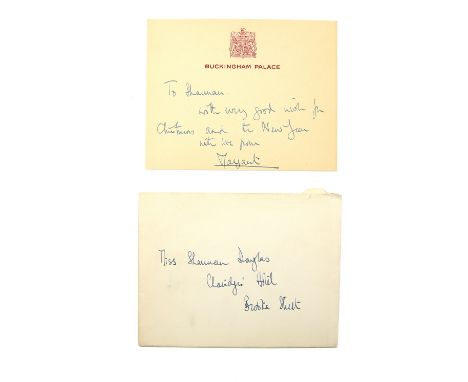 BUCKINGHAM PALACE
To Sharman.
with very good wishes for
Christmas and the New Year
with love from
Margaret
Miss Sharman Douglas
Claridges Hotel
Brooke Street